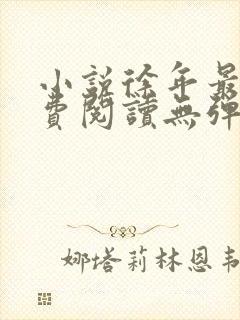 小說徐年最
費閱讀無彈
娜塔莉林恩韋